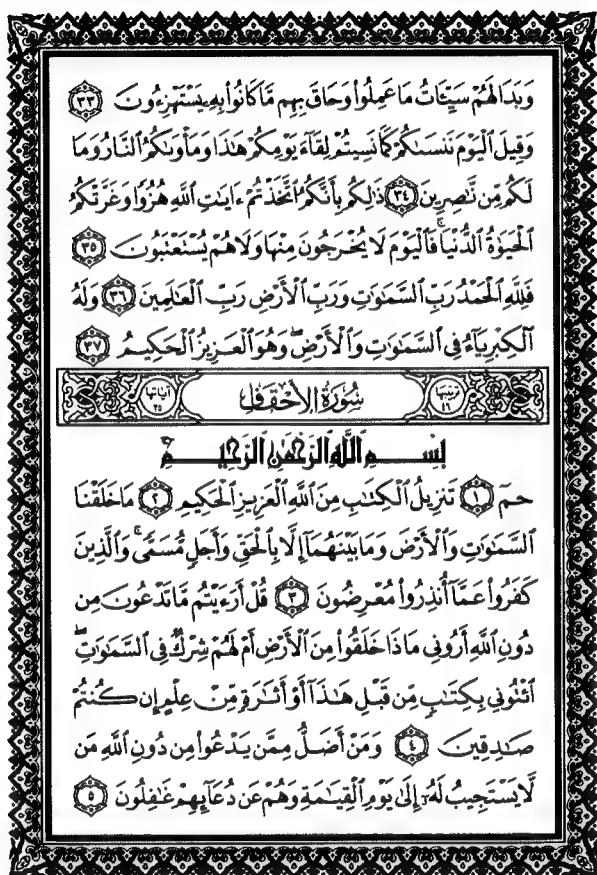 وَبَدَا لَهُمْ سَيِّئَاتُ مَا عَمِلُوا۟ وَحَاقَ بِهِم مَّا كَانُوا۟ بِهِۦ يَسْتَهْزِءُونَ ٣٣
وَقِيلَ ٱلْيَوْمَ نَنسَىٰكُمْ كَمَا نَسِيتُمْ لِقَآءَ يَوْمِكُمْ هَٰذَا وَمَأْوَىٰكُمُ ٱلنَّارُ وَمَا
لَكُم مِّن نَّٰصِرِينَ ٣٤ ذَٰلِكُم بِأَنَّكُمُ ٱتَّخَذْتُمْ ءَايَٰتِ ٱللَّهِ هُزُوًا وَغَرَّتْكُمُ
ٱلْحَيَوٰةُ ٱلدُّنْيَا ۚ فَٱلْيَوْمَ لَا يُخْرَجُونَ مِنْهَا وَلَا هُمْ يُسْتَعْتَبُونَ ٣٥
فَلِلَّهِ ٱلْحَمْدُ رَبِّ ٱلسَّمَٰوَٰتِ وَرَبِّ ٱلْأَرْضِ رَبِّ ٱلْعَٰلَمِينَ ٣٦ وَلَهُ
ٱلْكِبْرِيَآءُ فِى ٱلسَّمَٰوَٰتِ وَٱلْأَرْضِ ۖ وَهُوَ ٱلْعَزِيزُ ٱلْحَكِيمُ ٣٧
ترتيبها ٤٦ سُورَةُ الأَحْقَافِ آياتها ٣٥
بِسْمِ ٱللَّهِ ٱلرَّحْمَٰنِ ٱلرَّحِيمِ
حمٓ ١ تَنزِيلُ ٱلْكِتَٰبِ مِنَ ٱللَّهِ ٱلْعَزِيزِ ٱلْحَكِيمِ ٢ مَا خَلَقْنَا
ٱلسَّمَٰوَٰتِ وَٱلْأَرْضَ وَمَا بَيْنَهُمَآ إِلَّا بِٱلْحَقِّ وَأَجَلٍ مُّسَمًّى ۚ وَٱلَّذِينَ
كَفَرُوا۟ عَمَّآ أُنذِرُوا۟ مُعْرِضُونَ ٣ قُلْ أَرَءَيْتُم مَّا تَدْعُونَ مِن
دُونِ ٱللَّهِ أَرُونِى مَاذَا خَلَقُوا۟ مِنَ ٱلْأَرْضِ أَمْ لَهُمْ شِرْكٌ فِى ٱلسَّمَٰوَٰتِ ۖ
ٱئْتُونِى بِكِتَٰبٍ مِّن قَبْلِ هَٰذَآ أَوْ أَثَٰرَةٍ مِّنْ عِلْمٍ إِن كُنتُمْ
صَٰدِقِينَ ٤ وَمَنْ أَضَلُّ مِمَّن يَدْعُوا۟ مِن دُونِ ٱللَّهِ مَن
لَّا يَسْتَجِيبُ لَهُۥٓ إِلَىٰ يَوْمِ ٱلْقِيَٰمَةِ وَهُمْ عَن دُعَآئِهِمْ غَٰفِلُونَ ٥